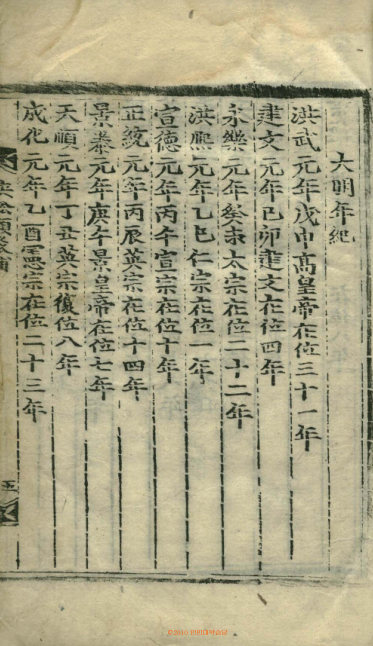 大明年紀
洪武元年戊申高皇帝在位三十一年
建文元年己卯建文在位四年
永樂元年癸未太宗在位二十二年
洪熙元年乙巳仁宗在位一年
宣德元年丙午宣宗在位十年
正統元年丙辰英宗在位十四年
景泰元年庚午景皇帝在位七年
天順元年丁丑英宗復位八年
成化元年乙酉憲宗在位二十三年
五